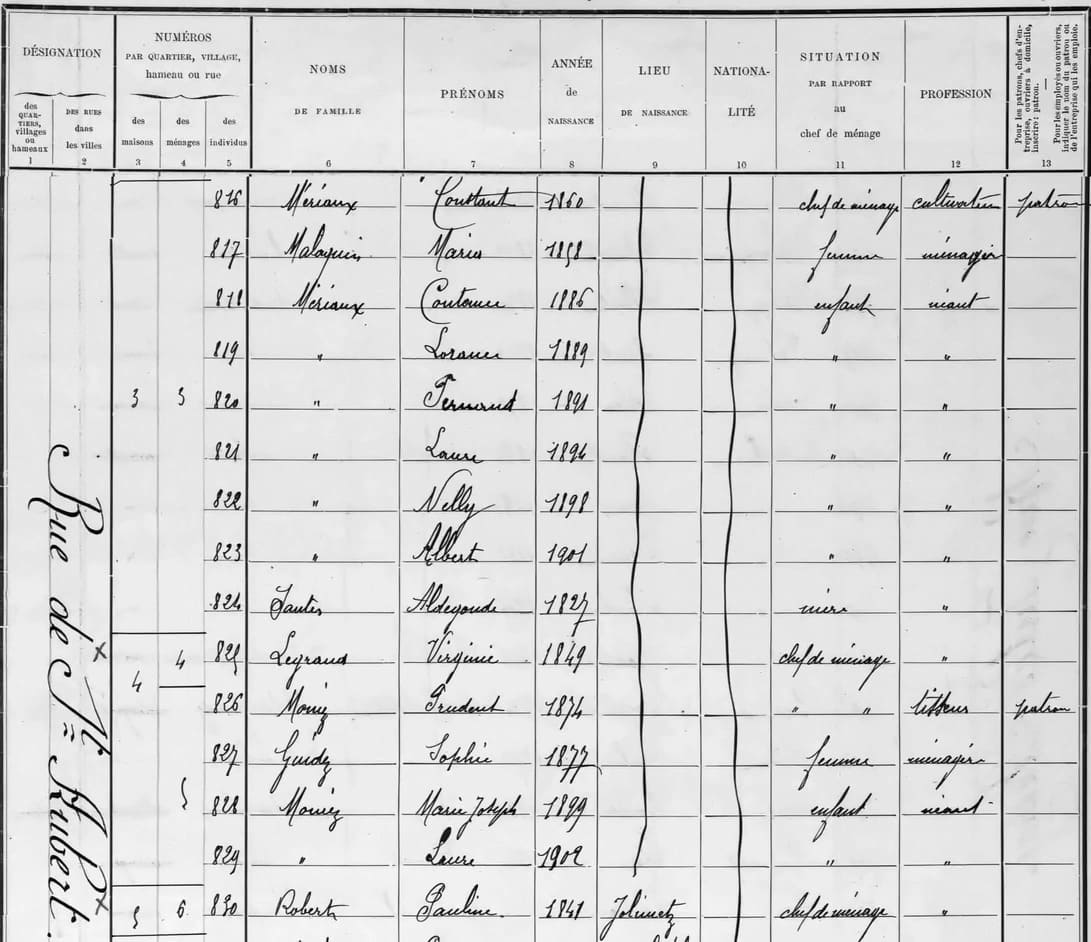 DÉSIGNATION
des QUARTIERS, villages ou hameaux
1
DES RUES dans les villes
2
NUMÉROS
PAR QUARTIER, VILLAGE,
hameau ou rue
des maisons
3
des ménages
4
des individus
5
NOMS
DE FAMILLE
6
PRÉNOMS
7
ANNÉE
de
NAISSANCE
8
LIEU
DE NAISSANCE
9
NATIONA-
LITÉ
10
SITUATION
PAR RAPPORT
au
chef de ménage
11
PROFESSION
12
Pour les patrons, chefs d'en-
treprise, ouvriers à domicile,
inscrire : patron.
Pour les employés ou ouvriers,
indiquer le nom du patron ou
de l'entreprise qui les emploie.
13
Rue de St= Hubert.
816 Mériaux Constant 1860 chef de ménage cultivateur patron
817 Malaquin Marie 1858 femme ménagère
818 Mériaux Constance 1886 enfant néant
819 " 1889 " "
3 3 820 " Fernand 1891 " "
821 " Laure 1894 " "
822 " Nelly 1898 " "
823 " Albert 1901 " "
824 Aldegonde 1827 mère "
4 4 825 Legrand Virginie 1849 chef de ménage "
826 Moniez Prudent 1874 " " tisseur patron
827 Guidez Sophie 1877 femme ménagère
5 828 Moniez Marie Joseph 1899 enfant néant
829 " Laure 1902 " "
5 6 830 Robert Pauline 1841 Jolimetz chef de ménage "